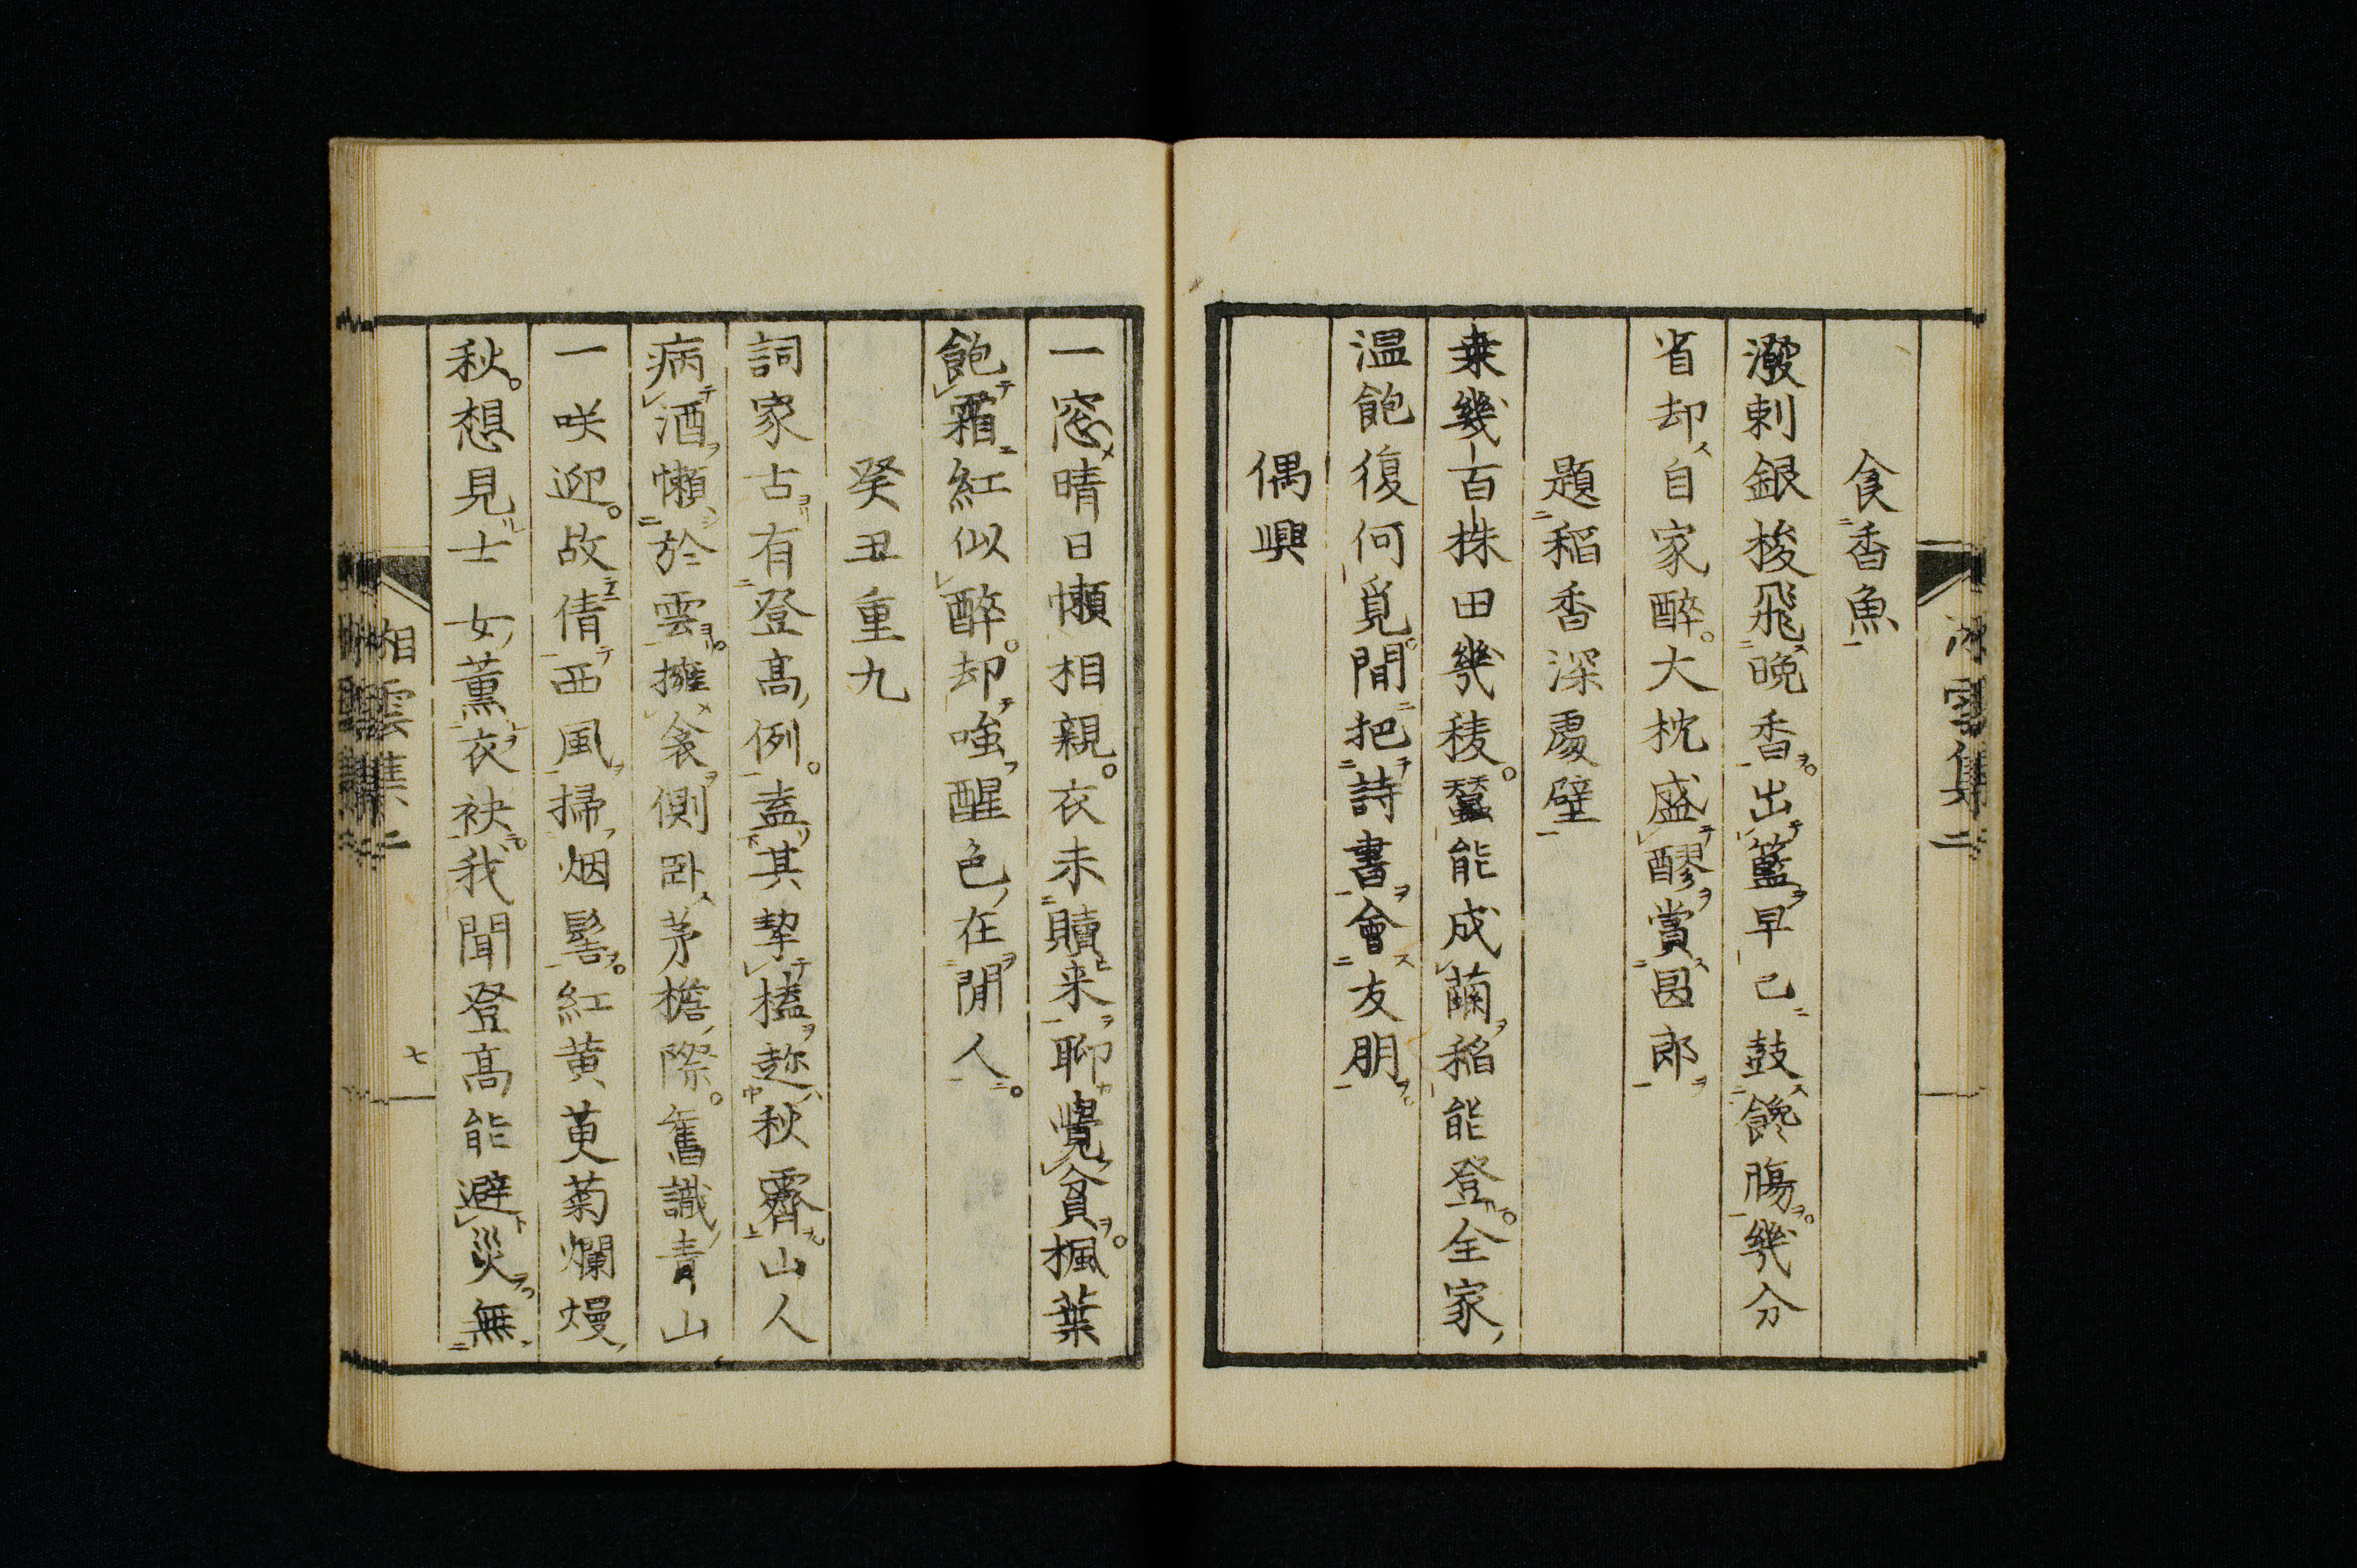 食香魚
潑剌銀梭飛晩香出籃早已鼓饞膓幾分
省却自家醉大枕盛醪賞圂郎
題稲香深處壁
桒幾百株田幾稜蠶能成繭稲能登全家
温飽復何覓閒把詩書會友朋
偶興
一窓晴日懶相親衣未贖来聊覺貧楓葉
飽霜紅似醉却嗤醒色在閒人
癸丑重九
詞家古有登髙例盍其挈榼趂秋霽山人
病酒懶於雲擁衾側卧茅檐際舊識青山
一咲迎故倩西風掃烟髻紅黄萸菊爛熳
秋想見士女薫衣袂我聞登髙能避災無
湘雲集二
七